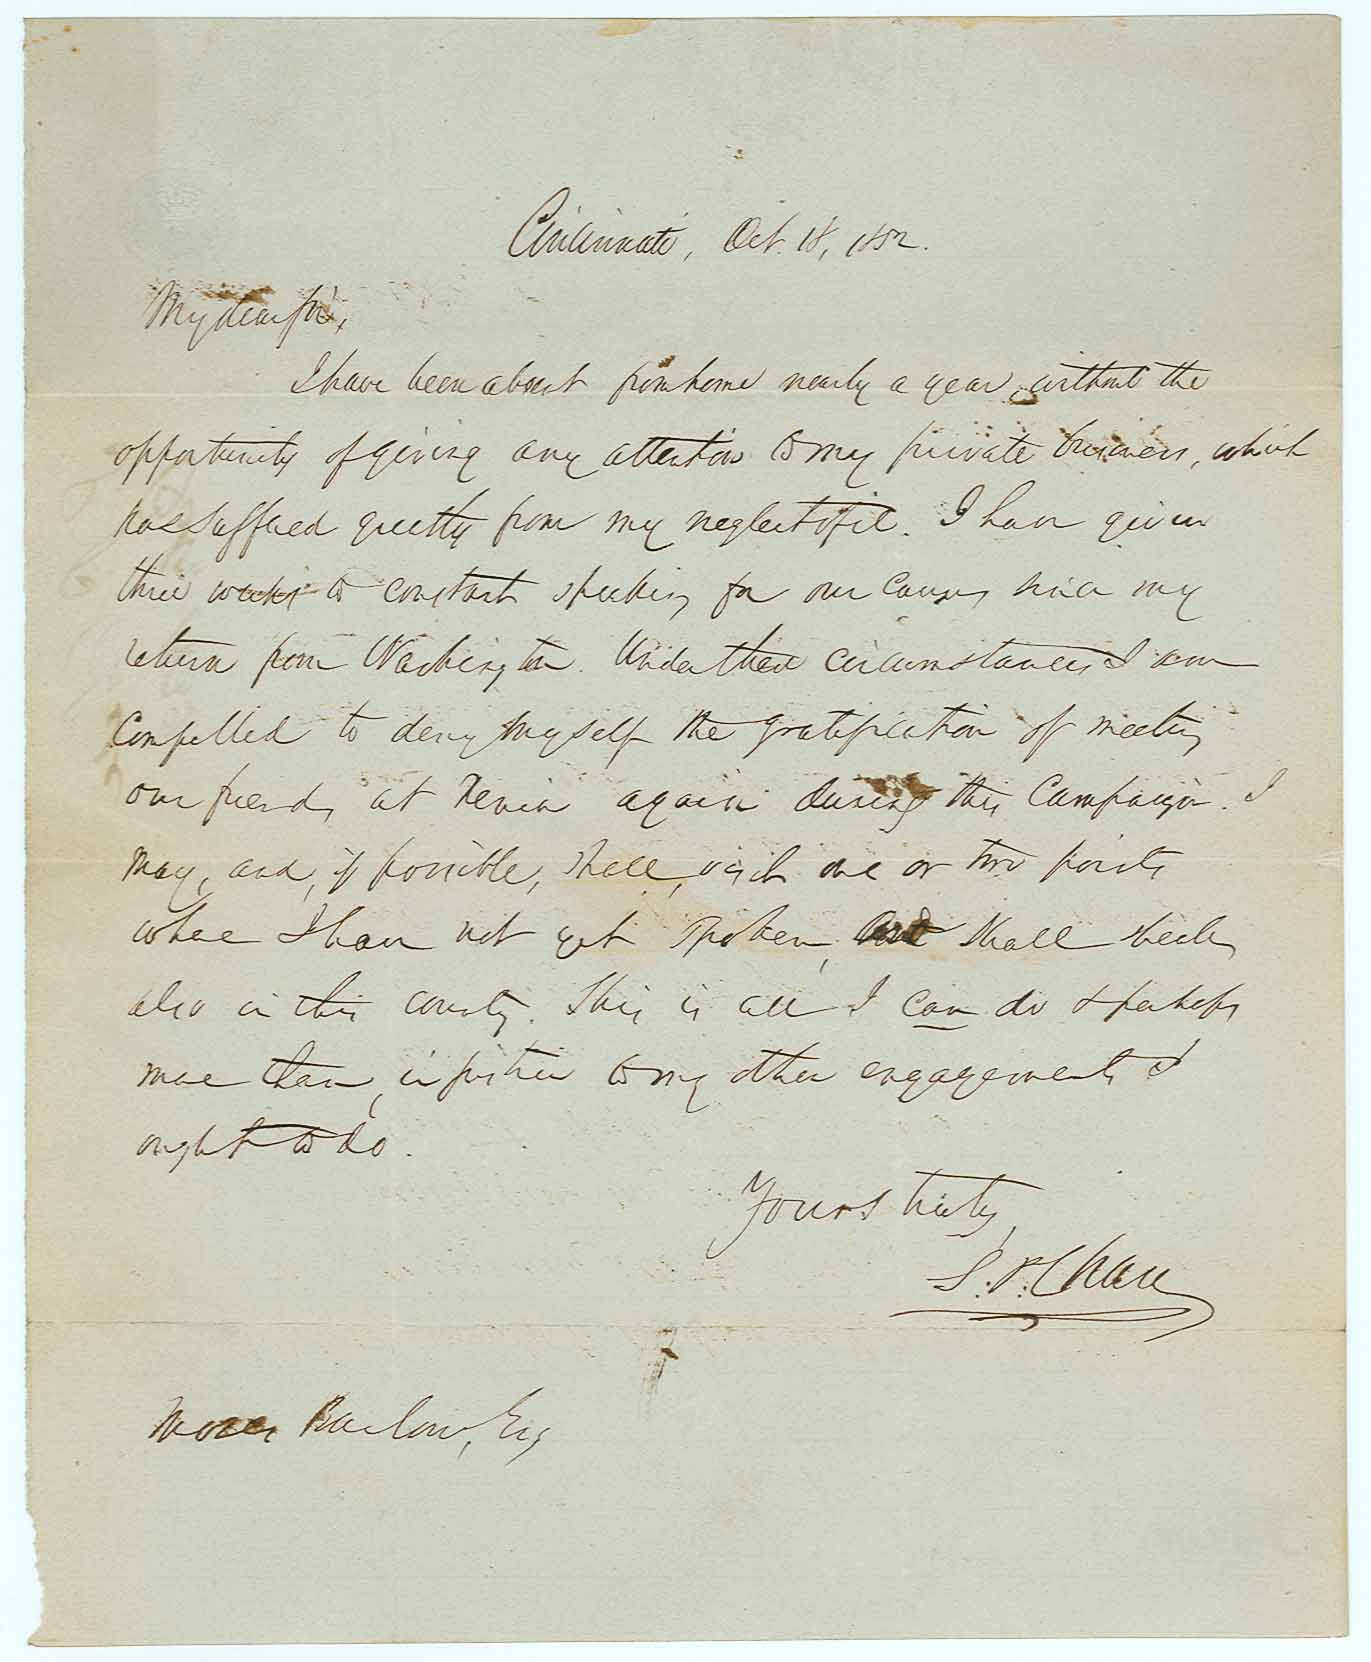 Cincinnati, Oct. 18, 1852.
My dear Sir,
I have been absent from home nearly a year, without the
opportunity of giving any attention to my private business, which
has suffered greatly from my neglect of it. I have given
three weeks to constant speaking for our cause, since my
return from Washington. Under these circumstances I am
compelled to deny myself the gratification of meeting
our friends at Xenia again during this Campaign. I
may, and, if possible, shall, visit one or two points
where I have not yet spoken, and shall speak
also in this county. This is all I can do & perhaps
more than, in justice to my other engagements I
ought to do.
Yours truly,
S. P. Chase
Moses Barlow, Esq